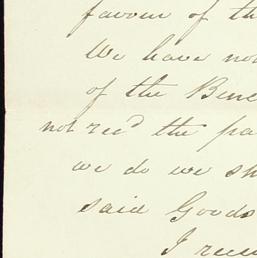 favour of th
We have no
of the Bene
not rec'd the pa
we do we sh
said Goods
I rece